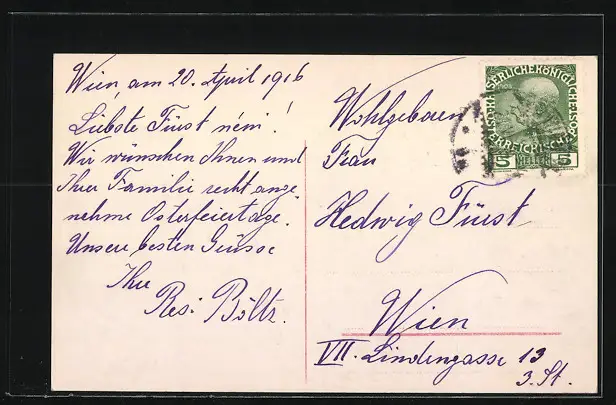 Wien, am 20. April 1916
Liebste Fürst néni!
Wir wünschen Ihnen und
Ihrer Familie recht ange-
nehme Osterfeiertage.
Unsere besten Grüsse
Ihre
Resi Böltz.
Wohlgeboren
Frau
Hedwig Fürst
Wien
VII. Lindengasse 13
3. St.
KAISERLICHE KÖNIGLICHE
ÖSTERREICHISCHE POST
5 HELLER 5